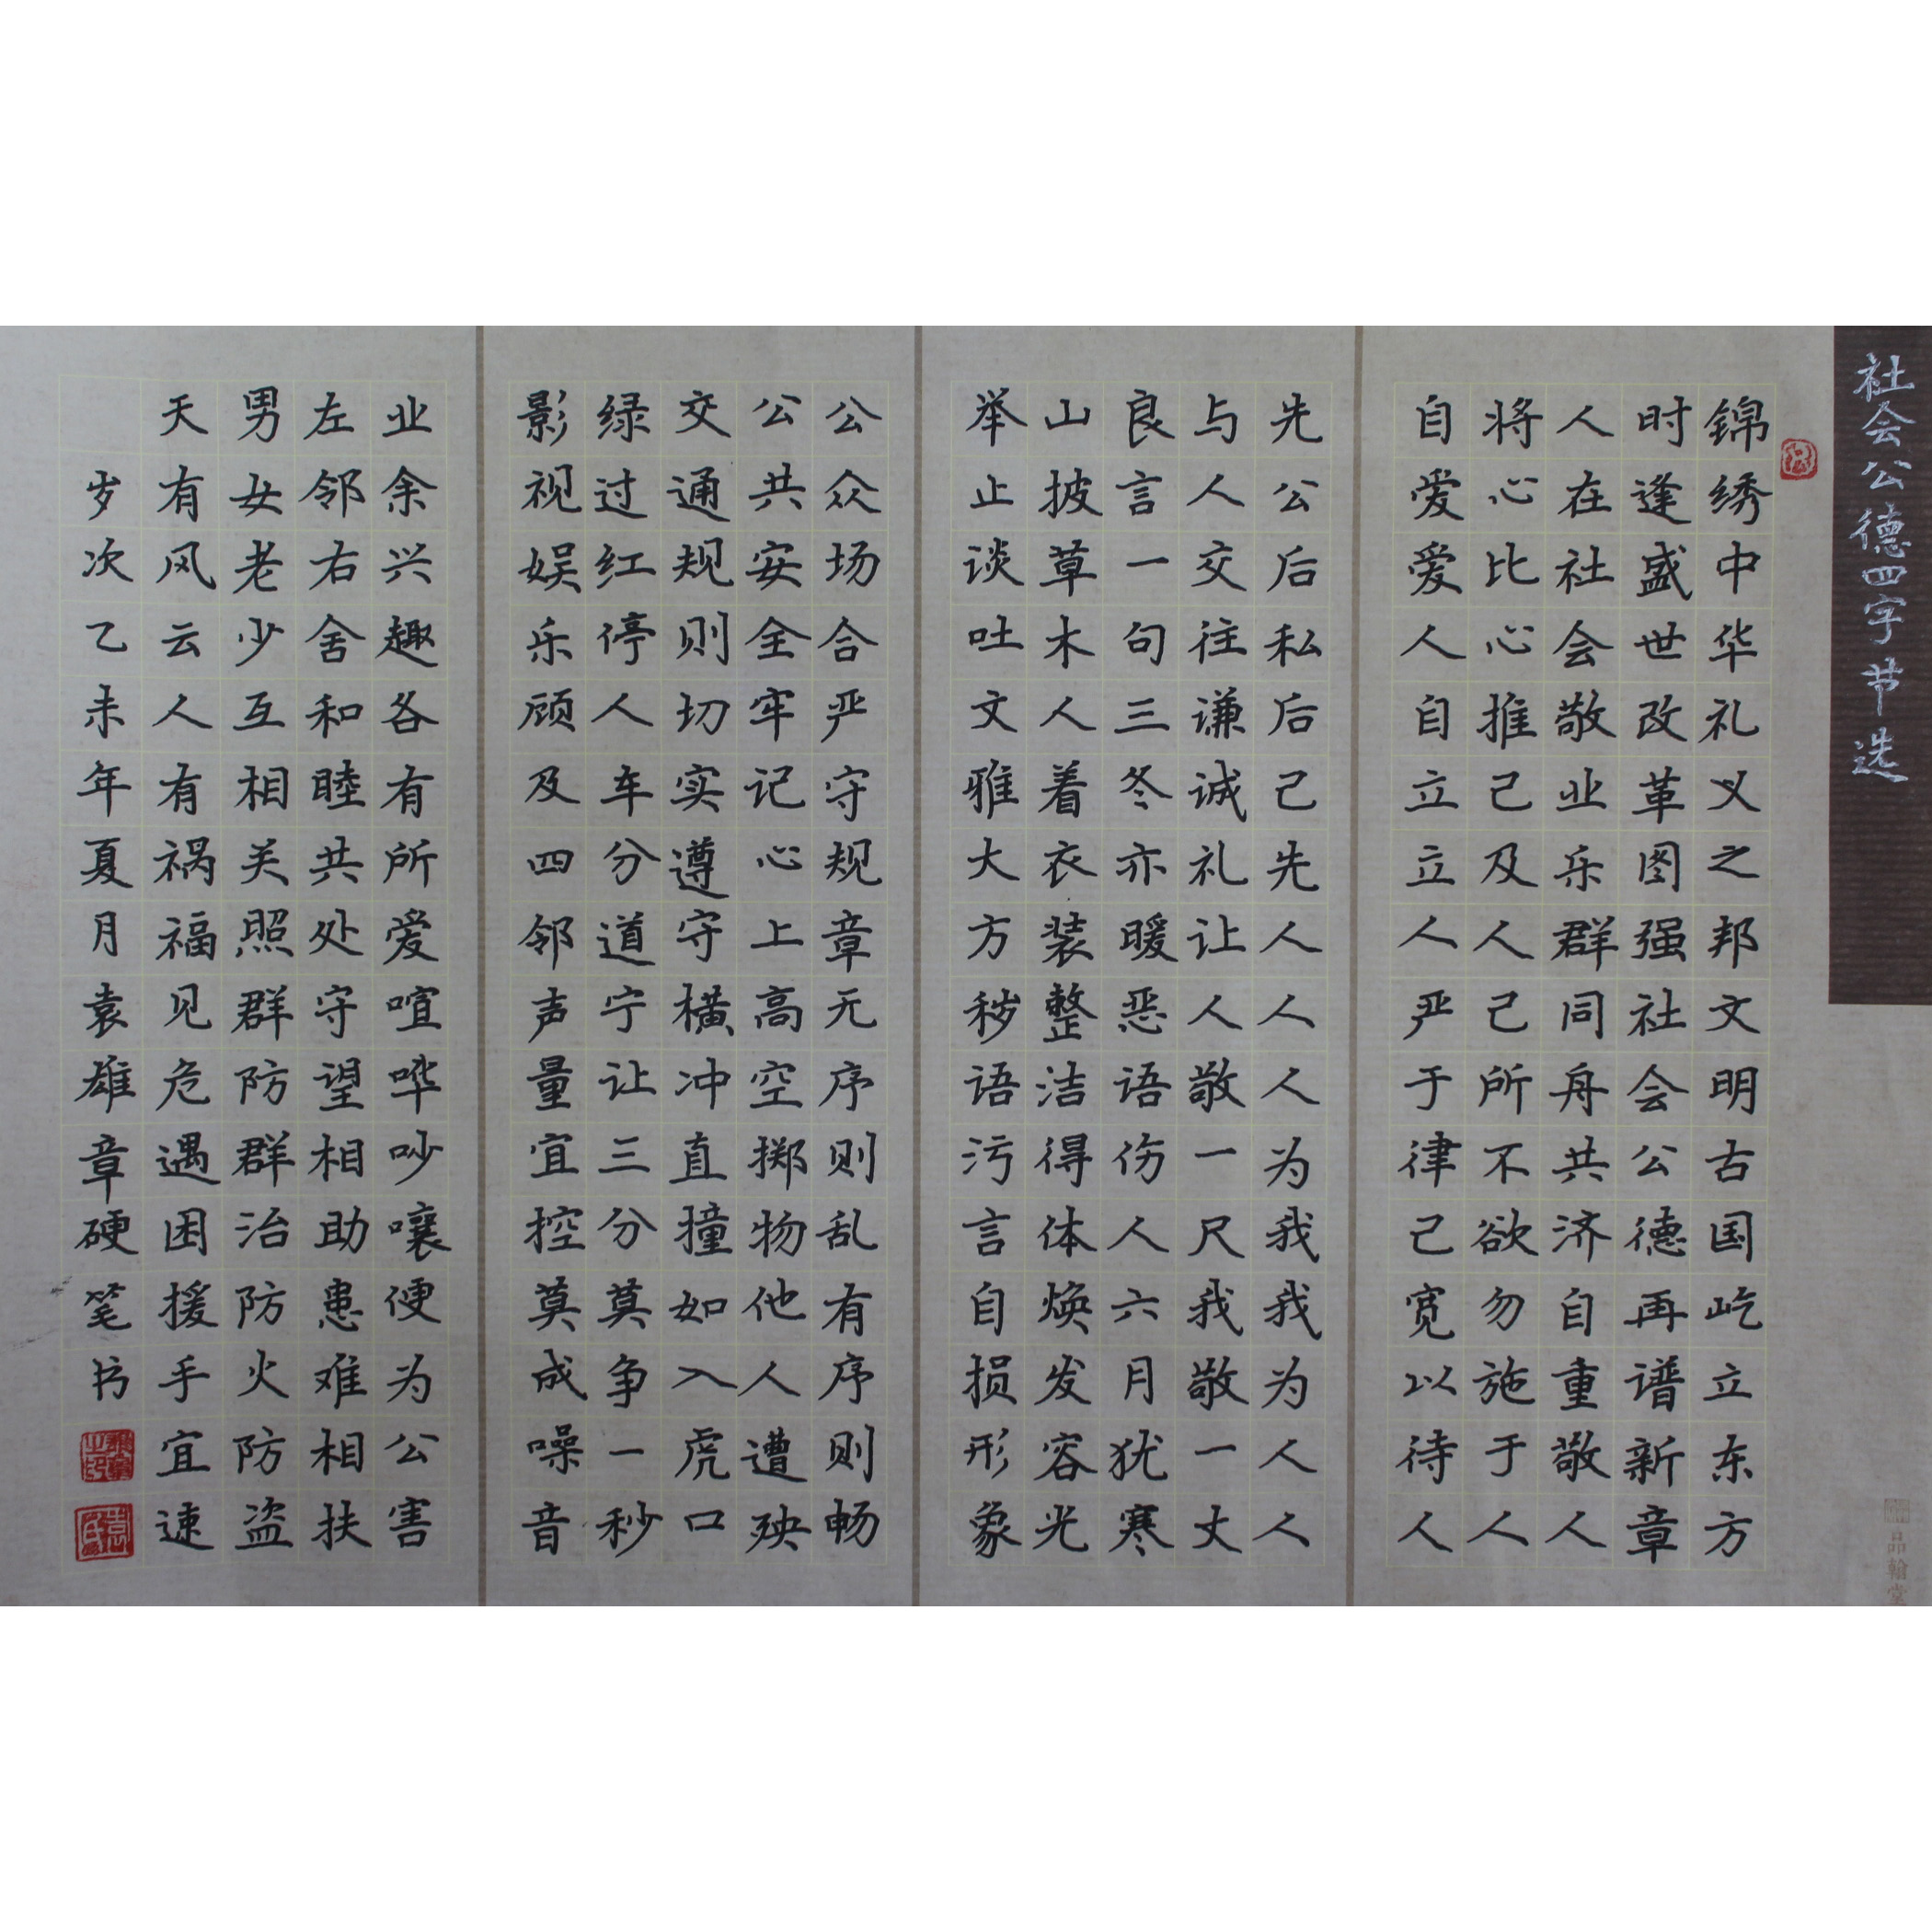 社会公德四字节选
锦绣中华礼义之邦文明古国屹立东方
时逢盛世改革图强社会公德再谱新章
人在社会敬业乐群同舟共济自重敬人
将心比心推己及人己所不欲勿施于人
自爱爱人自立立人严于律己宽以待人
先公后私后己先人人人为我我为人人
与人交往谦诚礼让人敬一尺我敬一丈
良言一句三冬亦暖恶语伤人六月犹寒
山披草木人着衣装整洁得体焕发容光
举止谈吐文雅大方秽语污言自损形象
公众场合严守规章无序则乱有序则畅
公共安全牢记心上高空掷物他人遭殃
交通规则切实遵守横冲直撞如入虎口
绿过红停人车分道宁让三分莫争一秒
影视娱乐顾及四邻声量宜控莫成噪音
业余兴趣各有所爱喧哗吵嚷便为公害
左邻右舍和睦共处守望相助患难相扶
男女老少互相关照群防群治防火防盗
天有风云人有祸福见危遇困援手宜速
岁次乙未年夏月袁雄章硬笔书
品翰堂